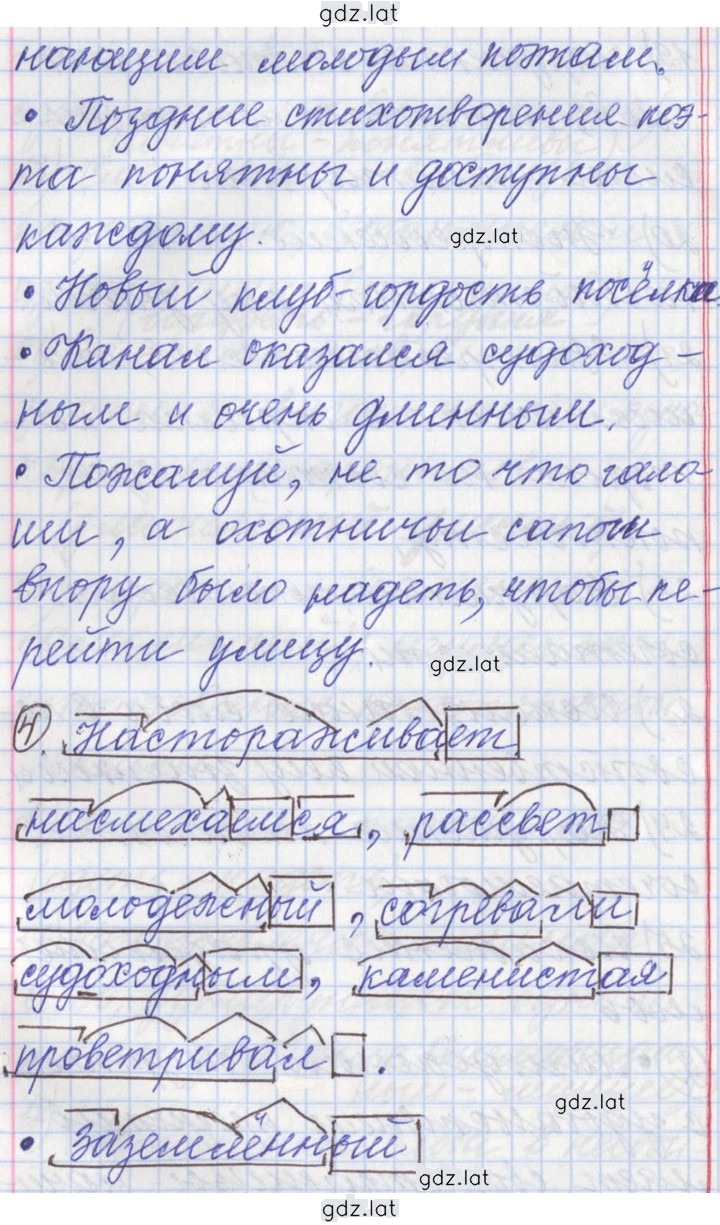 gdz.lat
нающим молодым поэтам.
• Поздние стихотворения поэ-
та понятны и доступны
каждому.
gdz.lat
• Новый клуб-гордость посёлка
• Канал оказался судоход-
ным и очень длинным.
• Пожалуй, не то что гало
ши, а охотничьи сапоги
впору было надеть, чтобы пе-
рейти улицу.
gdz.lat
4. Настораживает
насмехаемся, рассвет
молодежный, согревали
судоходным, каменистая
проветривал.
gdz.lat
• заземлённый
gdz.lat
gdz.lat